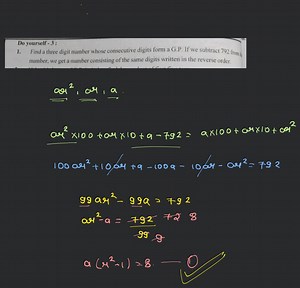 Do yourself - 3 :
1. Find a three digit number whose consecutive digits form a G.P. If we subtract 792 from
number, we get a number consisting of the same digits written in the reverse order.
ar², ar, a
ar²×100 + ar×10 + a - 792 = a×100 + ar×10 + ar²
100ar² + 10ar + a - 100a - 10ar - ar² = 792
99ar² - 99a = 792
ar² - a = 792 72 8
99 9
a(r²-1) = 8